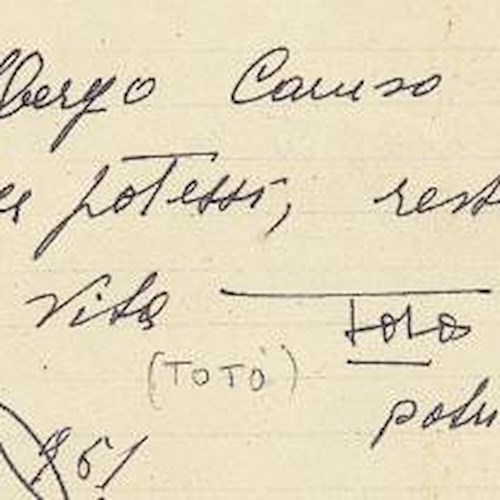 lbergo Caruso
potessi, rest
vita
Totò
(TOTÒ)
potu